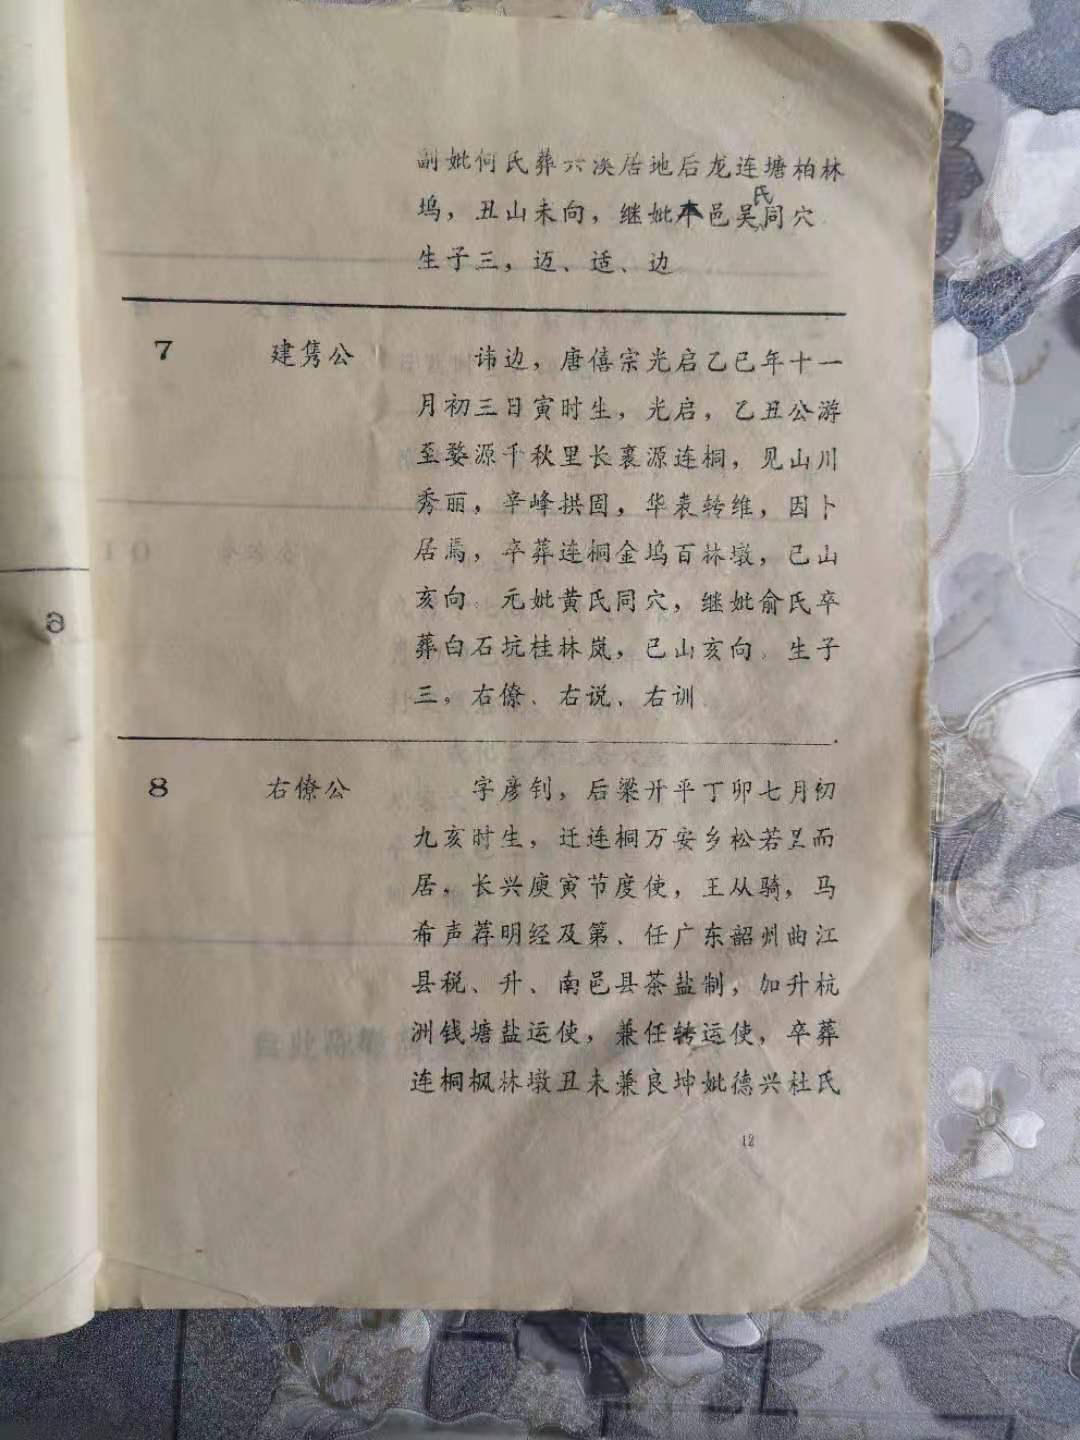 副妣何氏葬六溪居地后龙连塘柏林
坞，丑山未向，继妣本邑吴氏同穴
生子三，迈、适、边
7 建隽公 讳边，唐僖宗光启乙巳年十一
月初三日寅时生，光启，乙丑公游
至婺源千秋里长襄源连桐，见山川
秀丽，辛峰拱固，华表转维，因卜
居焉，卒葬连桐金坞百林墩，已山
亥向。元妣黄氏同穴，继妣俞氏卒
葬白石坑桂林岚，已山亥向。生子
三。右僚、右说、右训
8 右僚公 字彦钊，后梁开平丁卯七月初
九亥时生，迁连桐万安乡松若里而
居。长兴庚寅节度使，王从骑，马
希声荐明经及第、任广东韶州曲江
县税、升、南邑县茶盐制，加升杭
洲钱塘盐运使，兼任转运使，卒葬
连桐枫林墩丑未兼良坤妣德兴杜氏
12